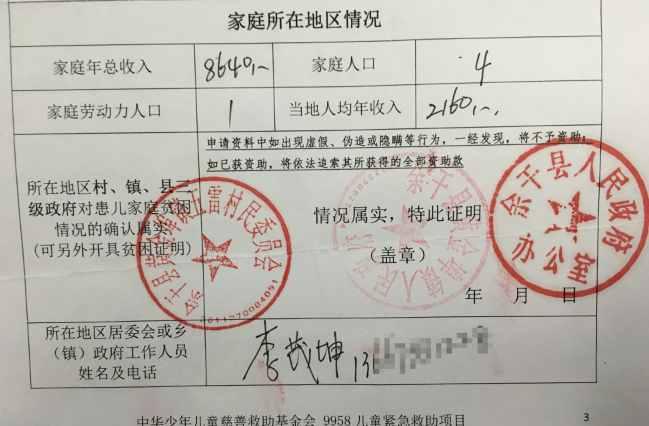 家庭所在地区情况
家庭年总收入 8640,~ 家庭人口 4
家庭劳动力人口 1 当地人均年收入 2160,~.
申请资料中如出现虚假、伪造或隐瞒等行为，一经发现，将不予资助；
如已获资助，将依法追索其所获得的全部资助款
所在地区村、镇、县三
级政府对患儿家庭贫困
情况的确认属实
(可另外开具贫困证明)
情况属实，特此证明
（盖章）
年 月 日
五雷村民委员会
余干县黄金埠镇人民政府
余干县人民政府
办公室
所在地区居委会或乡
（镇）政府工作人员
姓名及电话
李茂坤
中华少年儿童慈善救助基金会 9958 儿童紧急救助项目
3